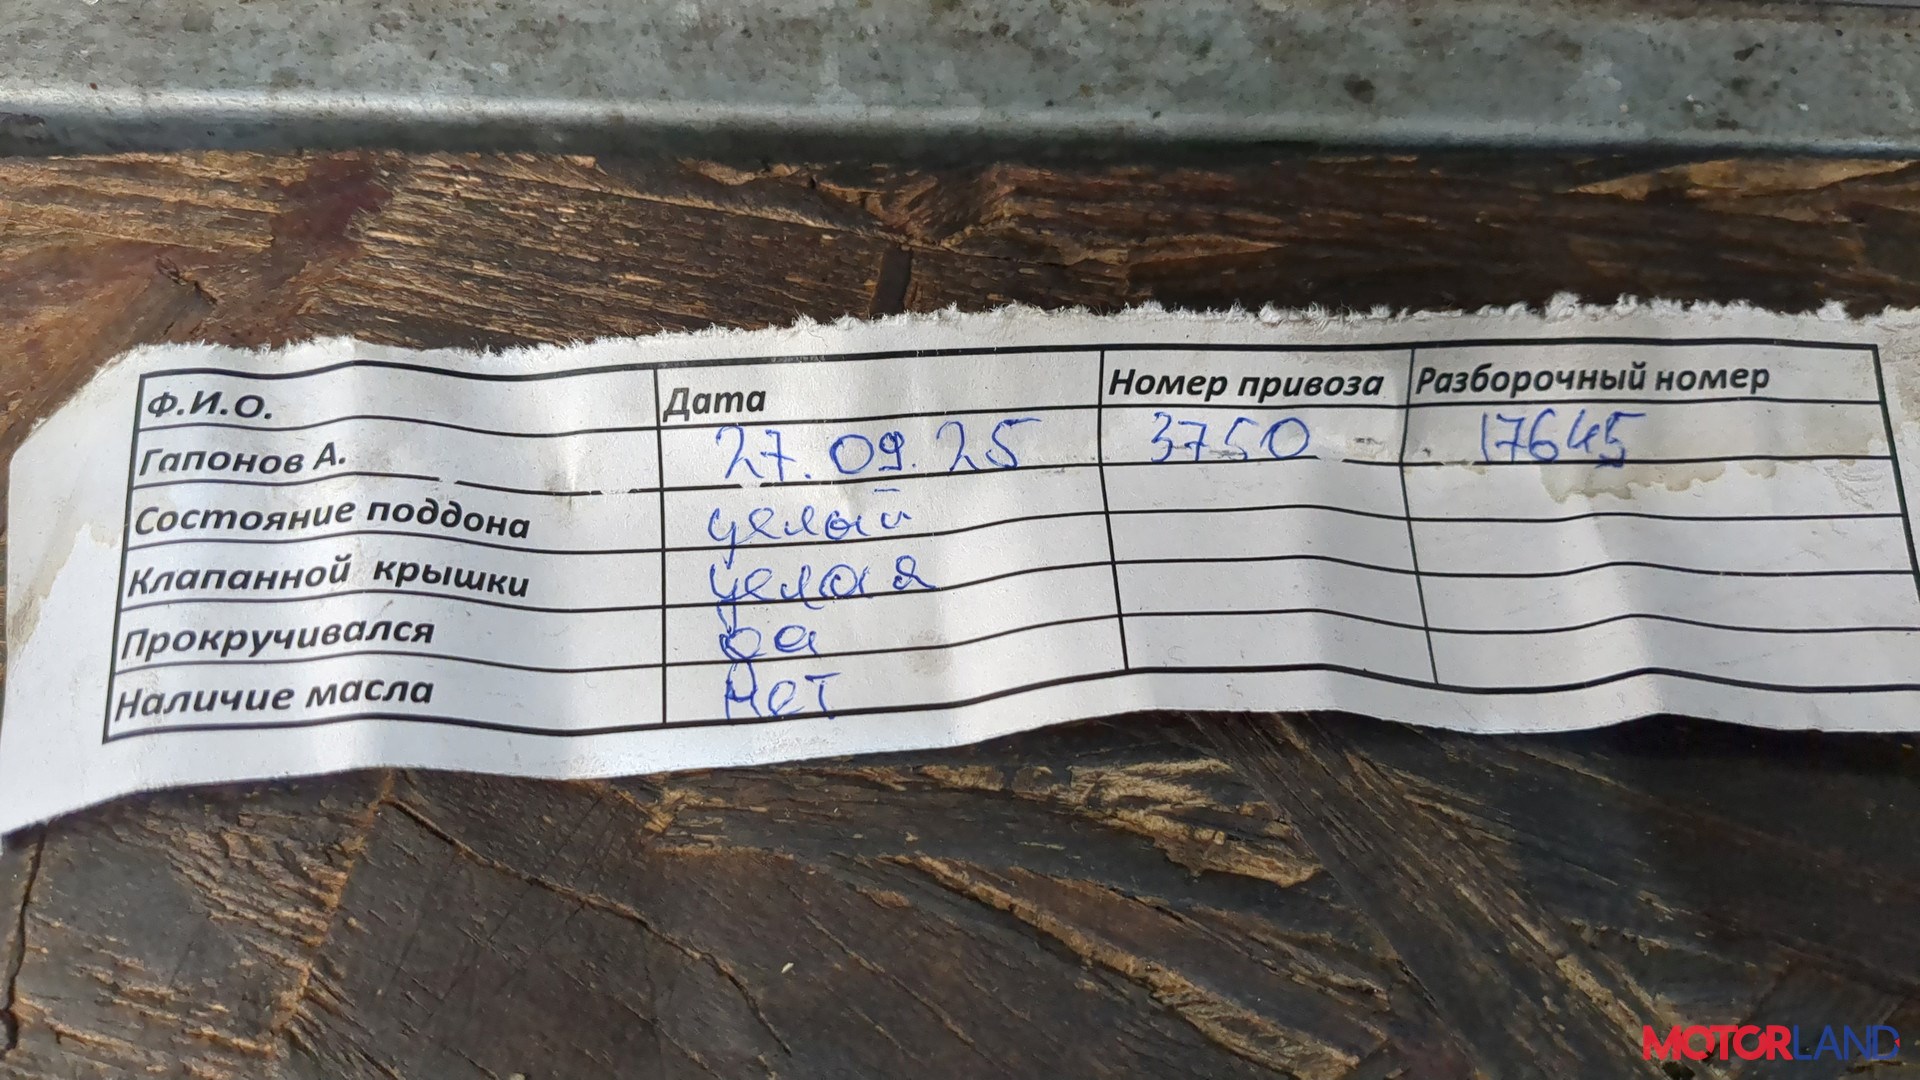 Ф.И.О. Дата Номер привоза Разборочный номер
Гапонов А. 27.09.25 3750 17645
Состояние поддона целый
Клапанной крышки целая
Прокручивался да
Наличие масла нет
MOTORLAND